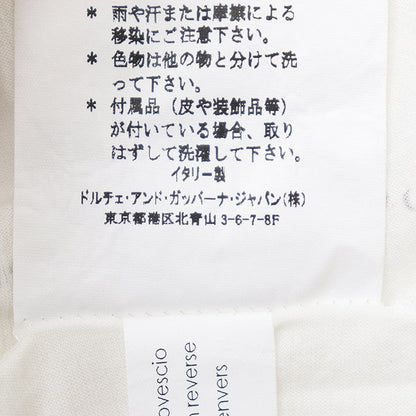 * 雨や汗または摩擦による
移染にご注意下さい。
* 色物は他の物と分けて洗
って下さい。
* 付属品（皮や装飾品等）
が付いている場合、取り
はずして洗濯して下さい。
イタリー製
ドルチェ・アンド・ガッバーナ・ジャパン(株)
東京都港区北青山 3-6-7-8F
ovescio
reverse
envers